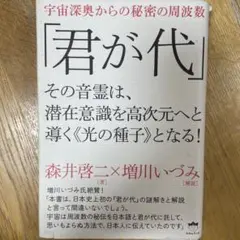 宇宙深奥からの秘密の周波数
「君が代」
その音霊は、
潜在意識を高次元へと
導く《光の種子》となる！
森井啓二×増川いづみ
[著] [解説]
増川いづみ氏絶賛！
「本書は、日本史上初の『君が代』の謎解きと解説
と言って間違いないでしょう。
宇宙は周波数の秘伝を日本語と君が代に託して、
思いもよらぬ方法で、日本人に伝えていたのです」